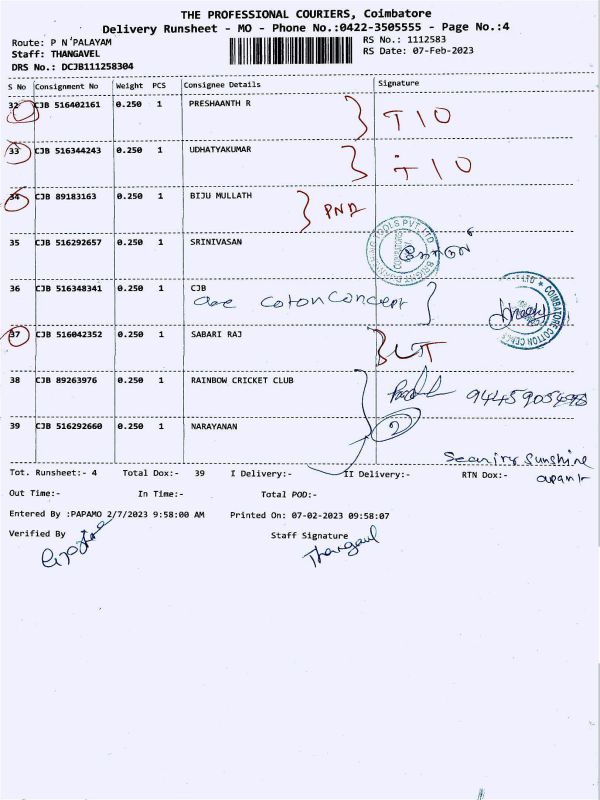 THE PROFESSIONAL COURIERS, Coimbatore
Delivery Runsheet - MO - Phone No.:0422-3505555 - Page No.:4
Route: P N'PALAYAM
RS No.: 1112583
Staff: THANGAVEL
RS Date: 07-Feb-2023
DRS No.: DCJB111258304
S No Consignment No Weight PCS Consignee Details Signature
32 CJB 516402161 0.250 1 PRESHAANTH R T I O
33 CJB 516344243 0.250 1 UDHATYAKUMAR T I O
34 CJB 89183163 0.250 1 BIJU MULLATH PND
35 CJB 516292657 0.250 1 SRINIVASAN
36 CJB 516348341 0.250 1 CJB
coton Concept
37 CJB 516042352 0.250 1 SABARI RAJ
38 CJB 89263976 0.250 1 RAINBOW CRICKET CLUB
39 CJB 516292660 0.250 1 NARAYANAN 2
Sunshine
Tot. Runsheet:- 4 Total Dox:- 39 I Delivery:- II Delivery:- RTN Dox:-
Out Time:- In Time:- Total POD:-
Entered By :PAPAMO 2/7/2023 9:58:00 AM Printed On: 07-02-2023 09:58:07
Verified By Staff Signature